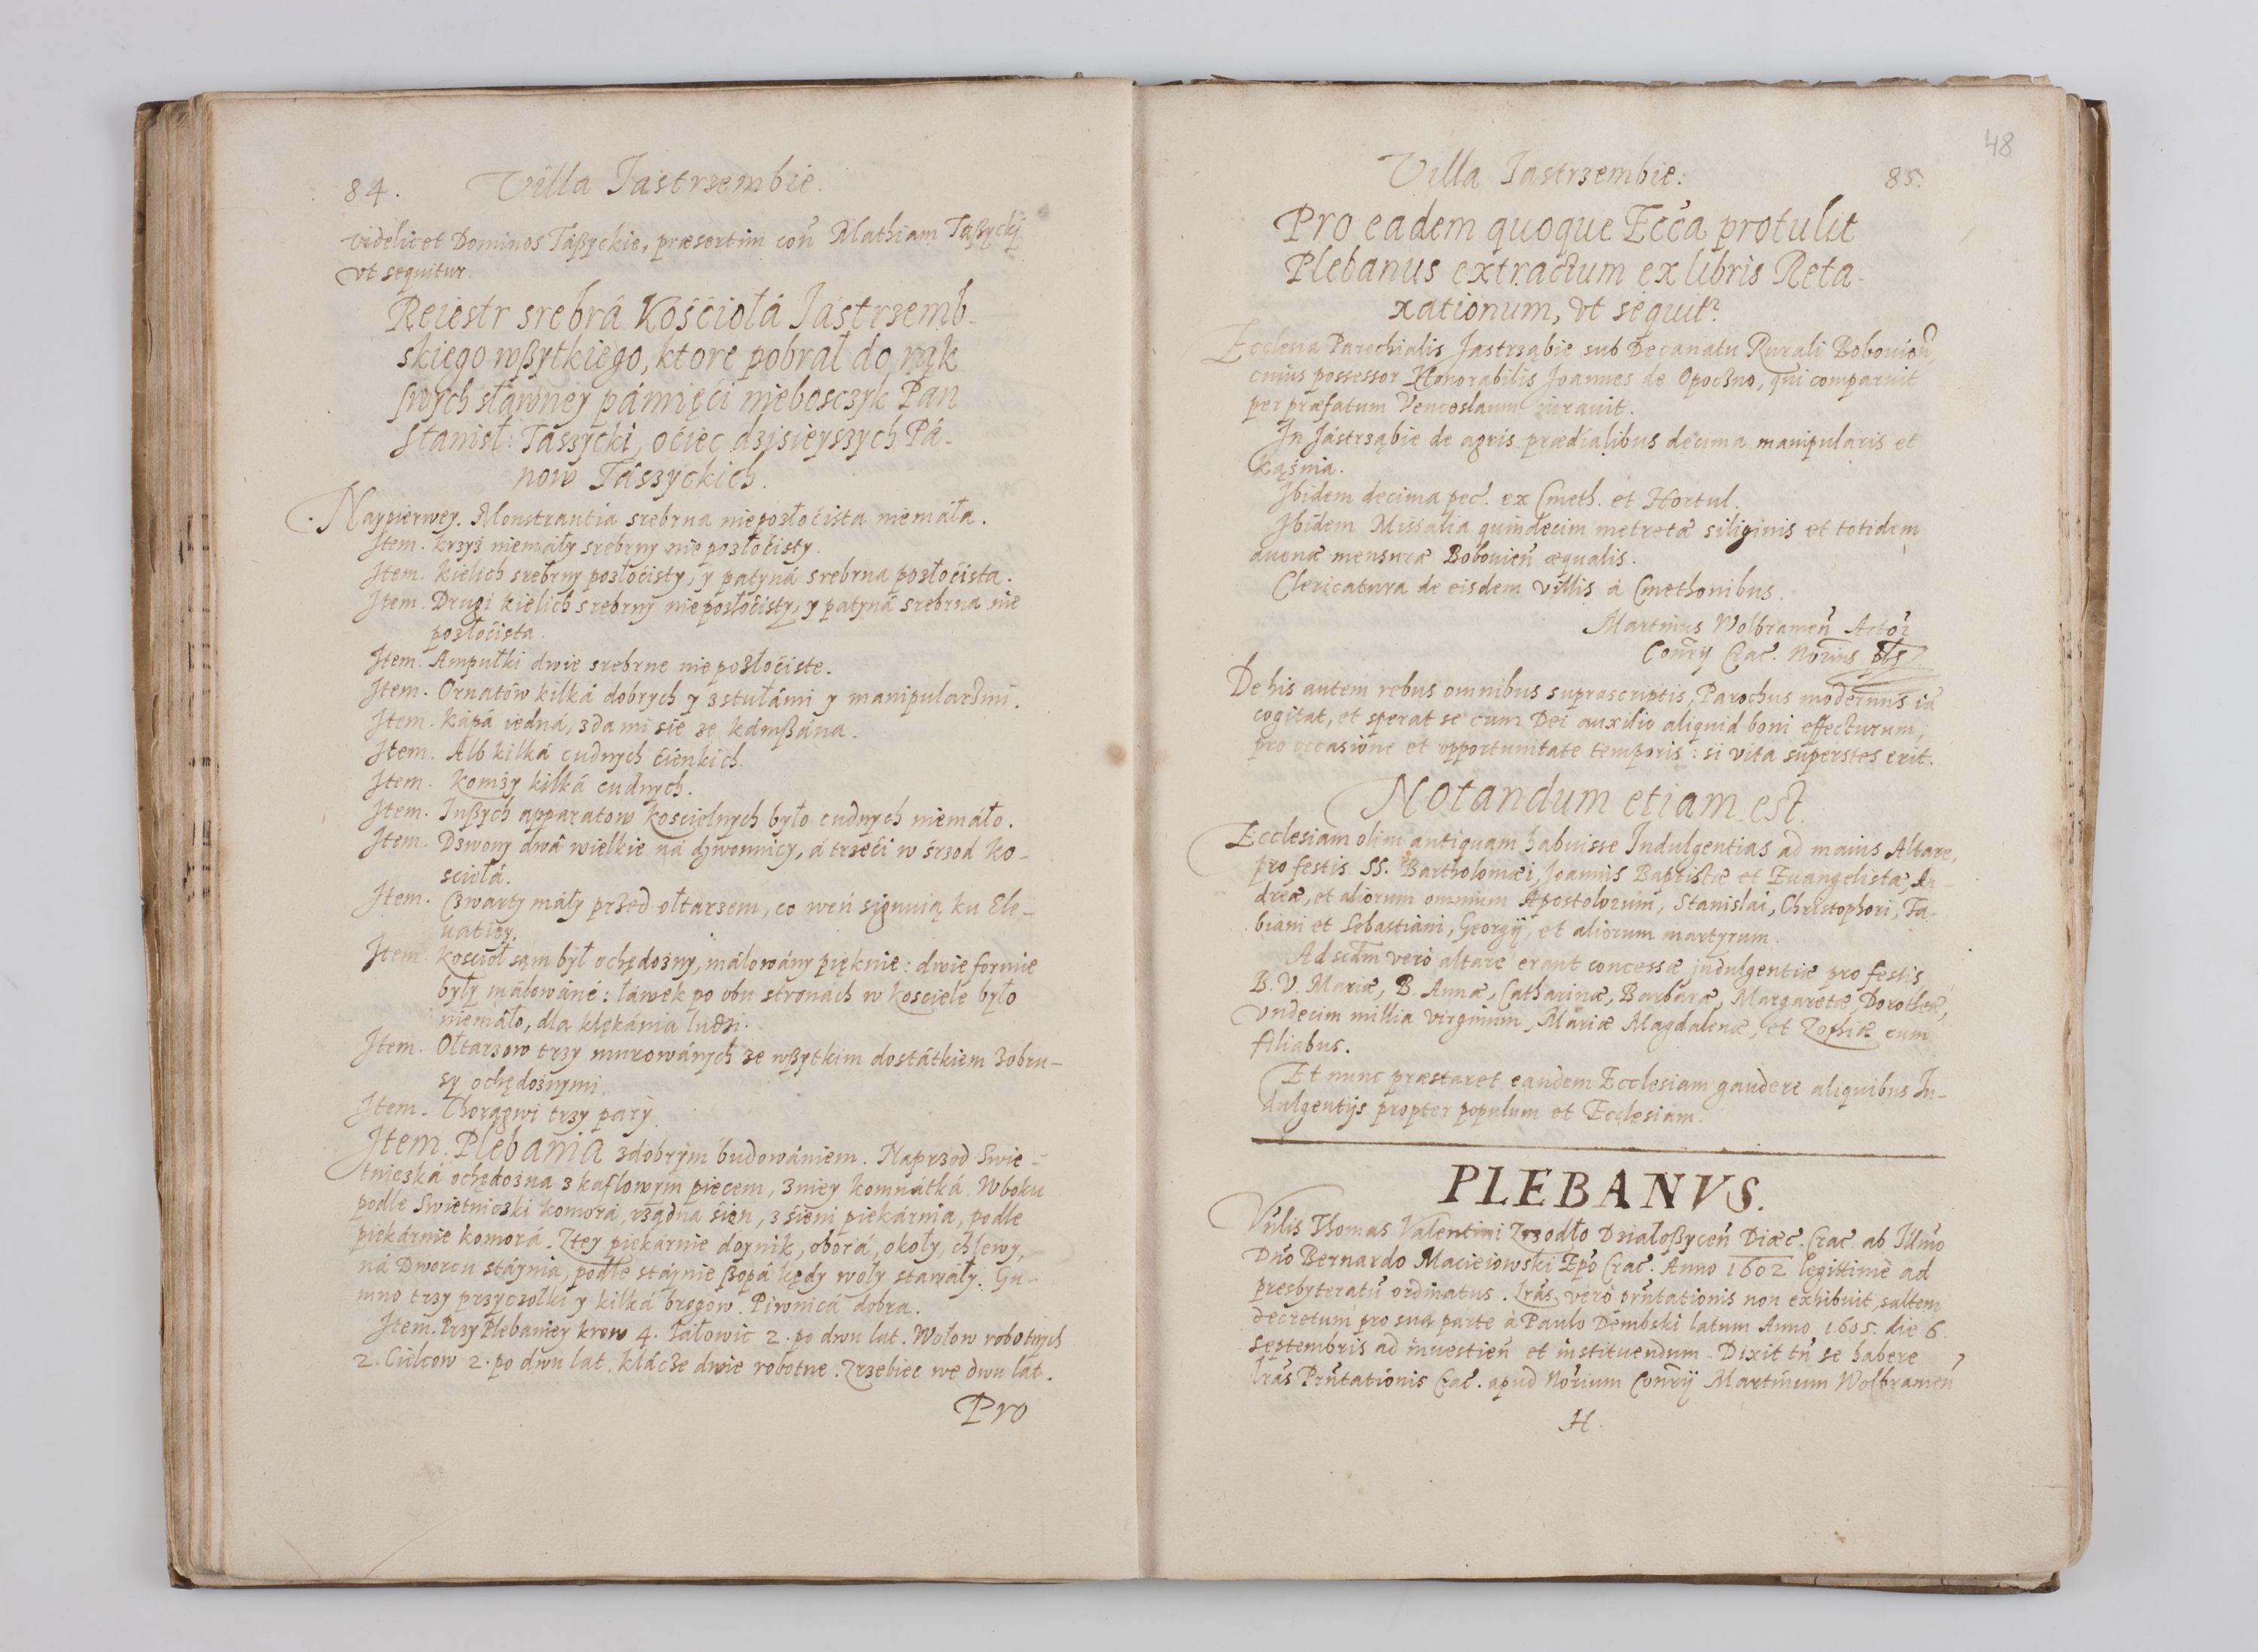 84. Villa Jastrzembie.
videlicet Dominos Taßyckie, præsertim coñ Mathiam Taßycký
vt sequitur.
Reiestr srebrá Kośćiołá Jástrzemb-
skiego wßytkiego, ktore pobrał do rąk
swych sławney pámięći nieboszczyk Pan
Stanisł: Tászycki, oćiec dzisieyszych Pá-
now Tászyckich.
Naypierwey. Monstrantia srebrna niepozłoćista niemáła.
Item. Krzyż niemáły srebrny nie pozłoćisty.
Item. Kielich srebrny pozłoćisty, y patyná srebrna pozłoćista.
Item. Drugi kielich srebrny niepozłoćisty, y patyná srebrna nie
pozłoćista.
Item. Ampułki dwie srebrne nie pozłoćiste.
Item. Ornatów kilká dobrych y z stułámi y manipularzmi.
Item. Kápá iedná, zda mi sie ze kámßána.
Item. Alb kilká cudnych ćienkich.
Item. Komży kilká cudnych.
Item. Inßych apparatow koscielnych było cudnych niemáło.
Item. Dzwony dwá wielkie ná dzwonnicy, á trzeći w śrzod Ko-
sciołá.
Item. Czwarty máły przed ołtarzem, co weń signuią ku Ele-
uatiey.
Item. Kościoł sam był ochędożny, málowány pięknie: dwie formie
były málowáné: łáwek po obu stronách w kosciele było
niemáło, dla klękánia ludzi.
Item. Ołtarzow trzy murowánych ze wßytkim dostátkiem zobru-
sy ochędożnymi.
Item. Chorągwi trzy pary.
Item. Plebania zdobrym budowániem. Naprzod Swie-
tniczká ochędożna z kaflowym piecem, zniey komnátká. Wboku
podle Swietniczki komorá, rządna śien, z śieni piekárnia, podle
piekárnie komorá. Ztey piekárnie doynik, oborá, okoły, chlewy,
ná Dworcu stáynia, podle stáynie ßopá kędy woły stawáły. Gu-
mno trzy przyczołki y kilká brogow. Piwnicá dobra.
Item. Przy Plebaniey krow 4. Iałowic 2. po dwu lat. Wołow robotnych
2. Ciołcow 2. po dwu lat. Klácze dwie robotne. Zrzebiec we dwu lat.
Pro
48
Villa Jastrzembie: 85.
Pro eadem quoque Ecc̄a protulit
Plebanus extractum ex libris Reta-
xationum, vt sequitr.
Ecclesia Parochialis Jastrząbie sub Decanatu Rurali Bobouień,
cuius possessor Honorabilis Joannes de Opoczno, qui comparuit
per præfatum Venceslaum iurauit.
In Jástrząbie de agris prædialibus decima manipularis et
Kąśnia.
Ibidem decima pec. ex Cmeth. et Hortul.
Ibidem Missalia quindecim metretæ siliginis et totidem
auenæ mensuræ Bobouień æqualis.
Clericatura de eisdem villis à Cmethonibus.
Martinus Wolbrameñ Actor
Coñrij Crac. Norius
De his autem rebus omnibus suprascriptis, Parochus modernus iā
cogitat, et sperat se cum Dei auxilio aliquid boni effecturum,
pro occasione et opportunitate temporis: si vita superstes erit.
Notandum etiam est.
Ecclesiam olim antiquam habuisse Indulgentias ad maius Altare,
pro festis SS. Bartholomæi, Joannis Baptistæ et Euangelistæ, An-
dreæ, et aliorum omnium Apostolorum, Stanislai, Christophori, Fa-
biani et Sebastiani, Georgij, et aliorum martyrum.
Ad scdm̄ verò altare erant concessæ indulgentiæ pro festis
B. V. Mariæ, B. Annæ, Catharinæ, Barbaræ, Margaretæ, Dorotheæ,
vndecim millia virginum, Mariæ Magdalenæ, et Zophiæ cum
filiabus.
Et nunc præstaret eandem Ecclesiam gaudere aliquibus In-
dulgentijs propter populum et Ecclesiam.
PLEBANVS.
Vn̄lis Thomas Valentini Zrzodło Dzialoßyceñ Diæc. Crac. ab Illmo
Dn̄o Bernardo Macieiowski Ep̄o Crac. Anno 1602 legittimè ad
presbyteratū ordinatus. Lr̄as verò prn̄tationis non exhibuit, saltem
decretum pro sua parte à Paulo Dembski latum Anno 1605. die 6.
Septembris ad inuestień et instituendum. Dixit tn̄ se habere
lr̄as Prn̄tationis Crac. apud Norium Coñrij Martinum Wolbrameñ
H.